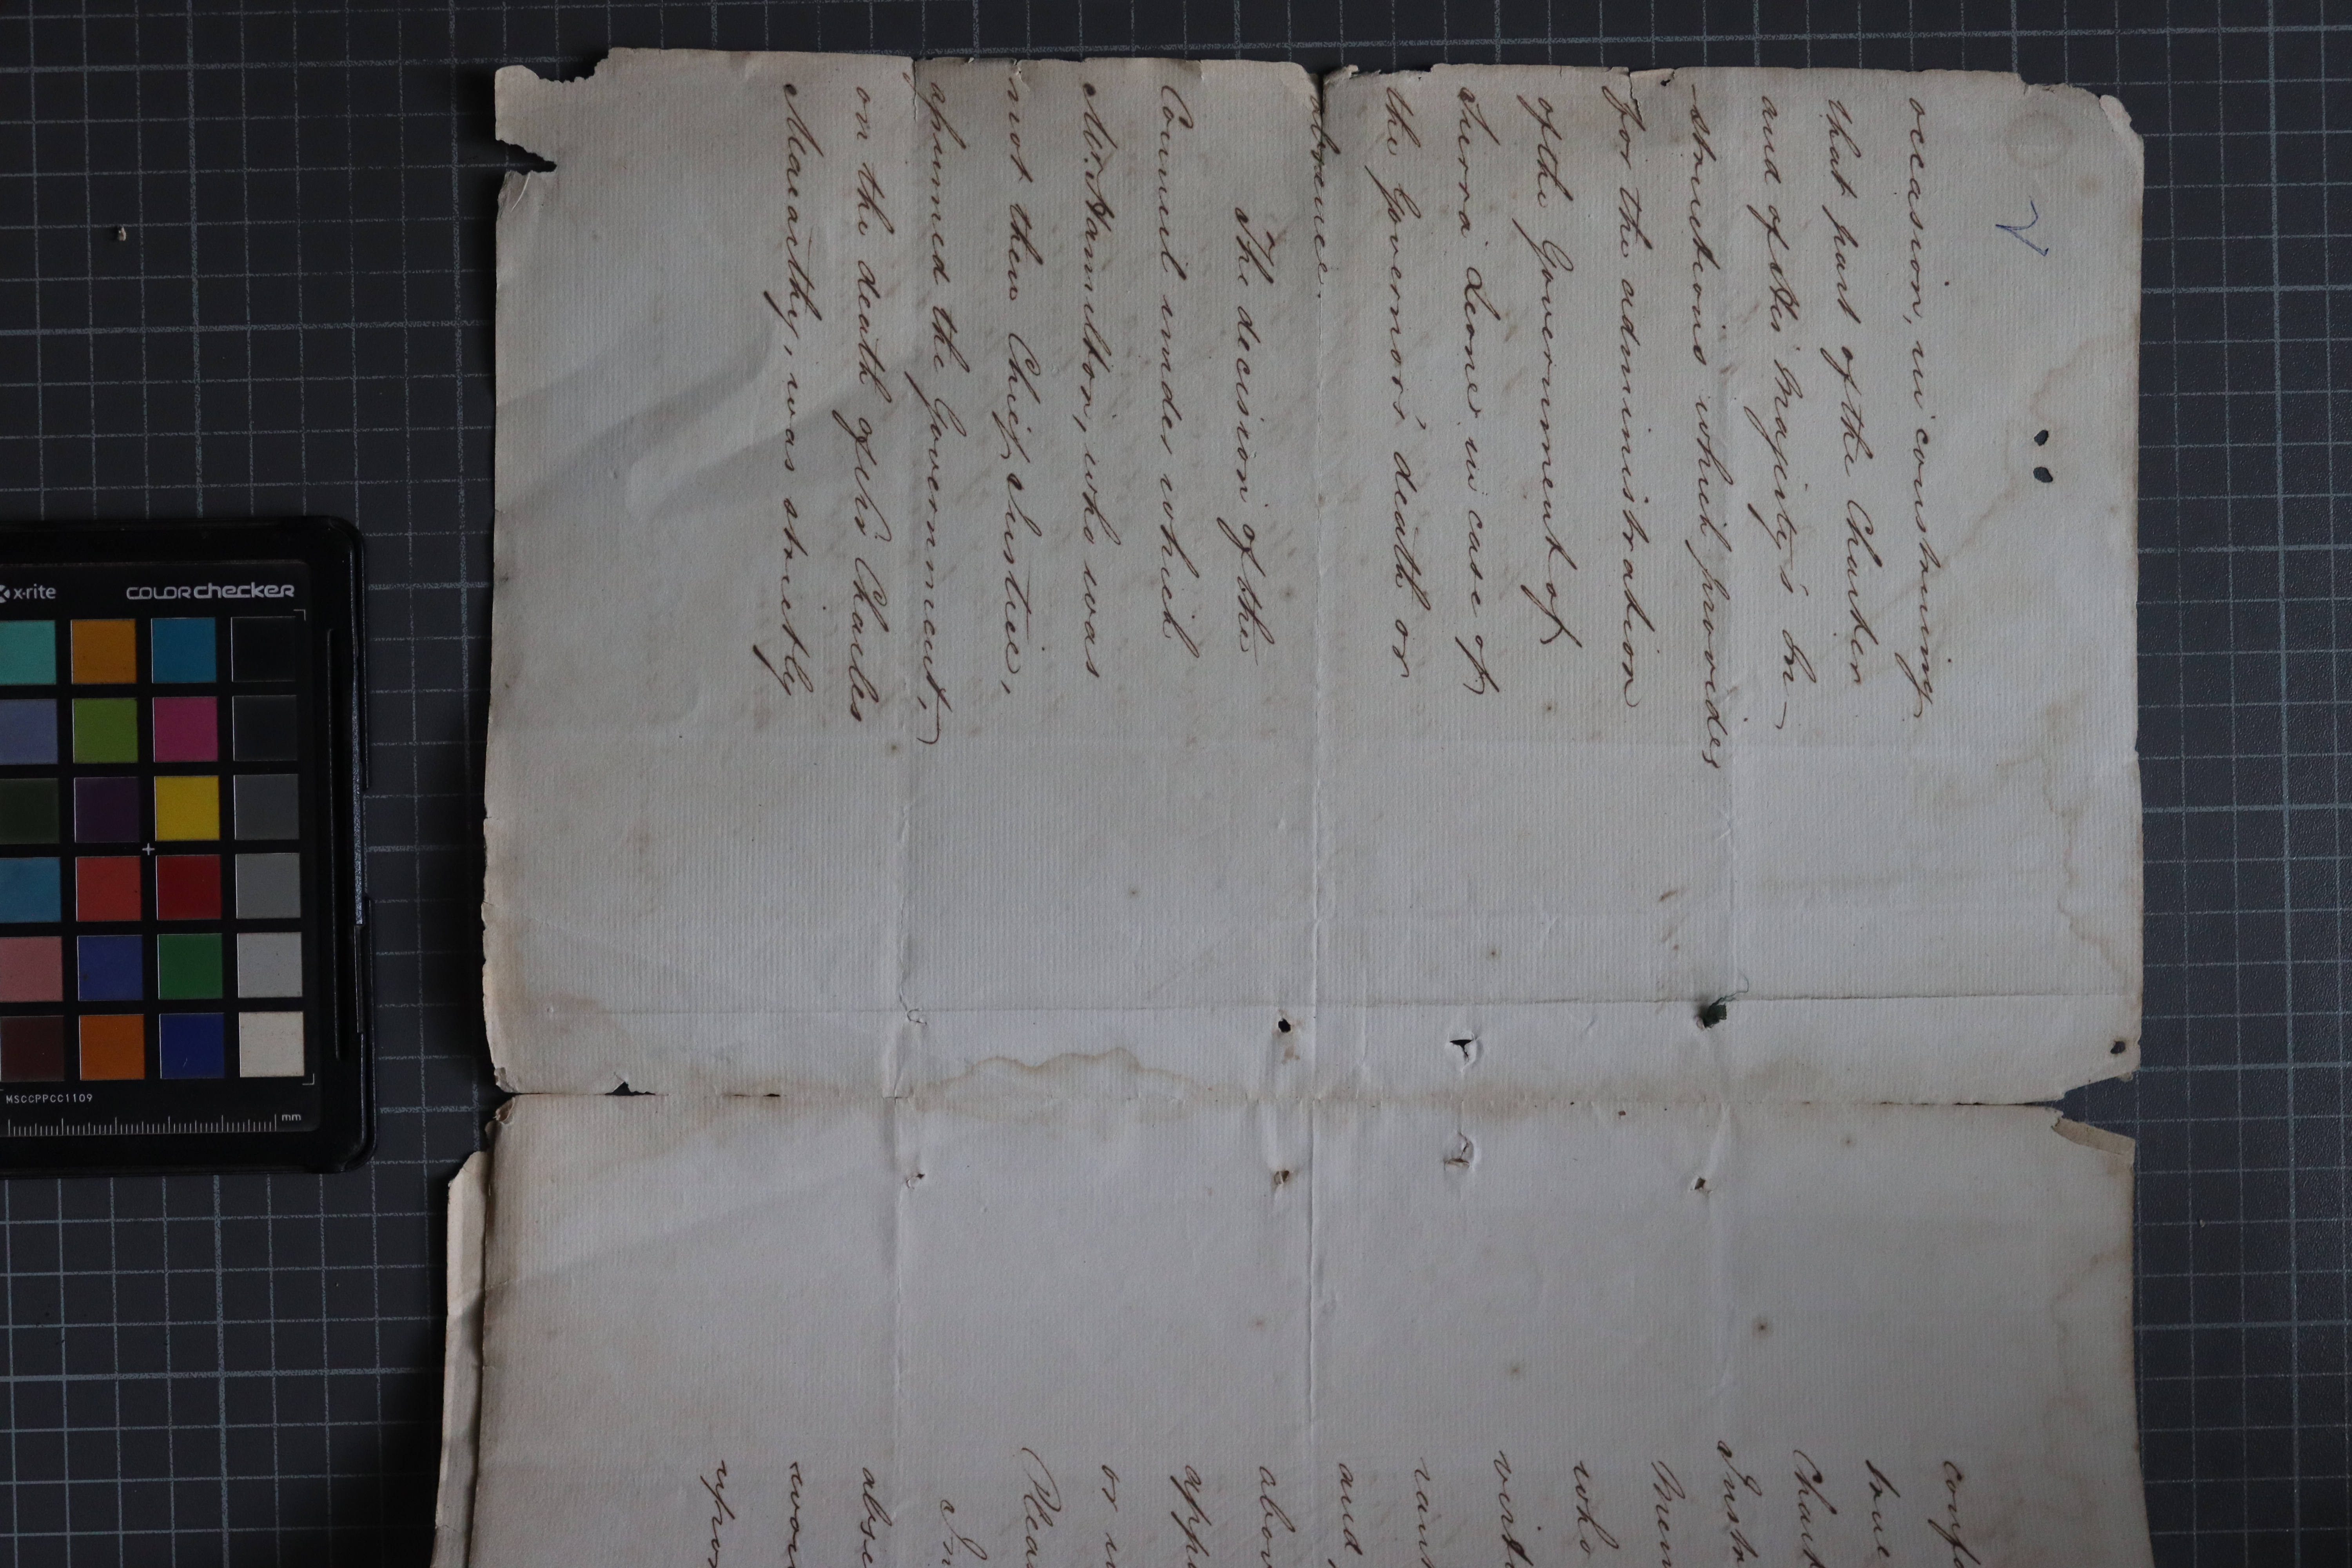 2
occasion, in construing
that part of the Charter
and of His Majesty's In-
structions which provides
for the administration
of the Government of
Sierra Leone in case of
the Governor's death or
absence.
The decision of the
Council under which
Mr. Hamilton, who was
not then Chief Justice,
assumed the Government,
on the death of Sir Charles
Macarthy, was strictly
confo
true
Chart
Instr
Mem
who
virtu
rant
and
abov
appo
or in
Pleas
In
abse
woul
upon
x-rite
COLORchecker
MSCCPPCC1109
mm